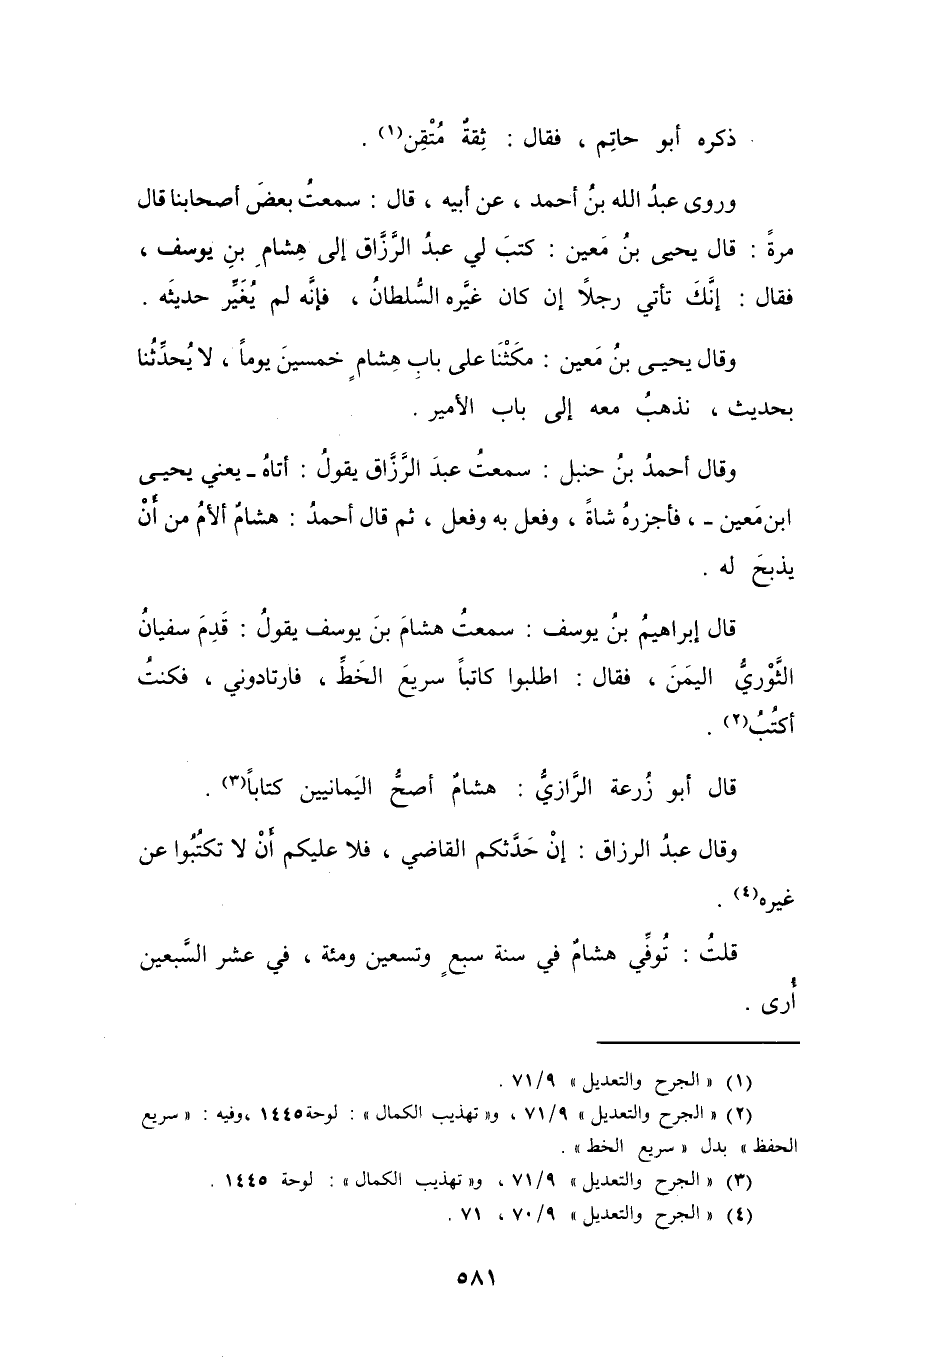 ذكره أبو حاتِم ، فقال : ثِقةٌ مُتْقِن(١) .
وروى عبدُ الله بنُ أحمد ، عن أبيه ، قال : سمعتُ بعضَ أصحابنا قال
مرةً : قال يحيى بنُ مَعين : كتبَ لي عبدُ الرَّزَّاق إلى هِشامِ بنِ يوسف ،
فقال : إنَّكَ تأتي رجلاً إن كان غيَّره السُّلطانُ ، فإنَّه لم يُغَيِّر حديثَه .
وقال يحيى بنُ مَعين : مكَثْنَا على بابِ هِشامٍ خمسينَ يوماً ، لا يُحدِّثُنا
بحديث ، نذهبُ معه إلى باب الأمير .
وقال أحمدُ بنُ حنبل : سمعتُ عبدَ الرَّزَّاق يقولُ : أتاهُ ـ يعني يحيى
ابن مَعين ـ ، فأجزرهُ شاةً ، وفعل به وفعل ، ثم قال أحمدُ : هشامٌ ألأمُ من أَنْ
يذبحَ له .
قال إبراهيمُ بنُ يوسف : سمعتُ هشامَ بنَ يوسف يقولُ : قَدِمَ سفيانُ
الثَّوْريُّ اليمَنَ ، فقال : اطلبوا كاتباً سريعَ الخَطِّ ، فارتادوني ، فكنتُ
أكتُبُ(٢) .
قال أبو زُرعة الرَّازيُّ : هشامٌ أصحُّ اليَمانيين كتاباً(٣) .
وقال عبدُ الرزاق : إنْ حَدَّثكم القاضي ، فلا عليكم أَنْ لا تكتُبُوا عن
غيره(٤) .
قلتُ : تُوفِّي هشامٌ في سنة سبعٍ وتسعين ومئة ، في عشر السَّبعين
أُرى .
(١) « الجرح والتعديل » ٧١/٩ .
(٢) « الجرح والتعديل » ٧١/٩ ، و« تهذيب الكمال » : لوحة ١٤٤٥ ، وفيه : « سريع
الحفظ » بدل « سريع الخط » .
(٣) « الجرح والتعديل » ٧١/٩ ، و« تهذيب الكمال » : لوحة ١٤٤٥ .
(٤) « الجرح والتعديل » ٧٠/٩ ، ٧١ .
٥٨١